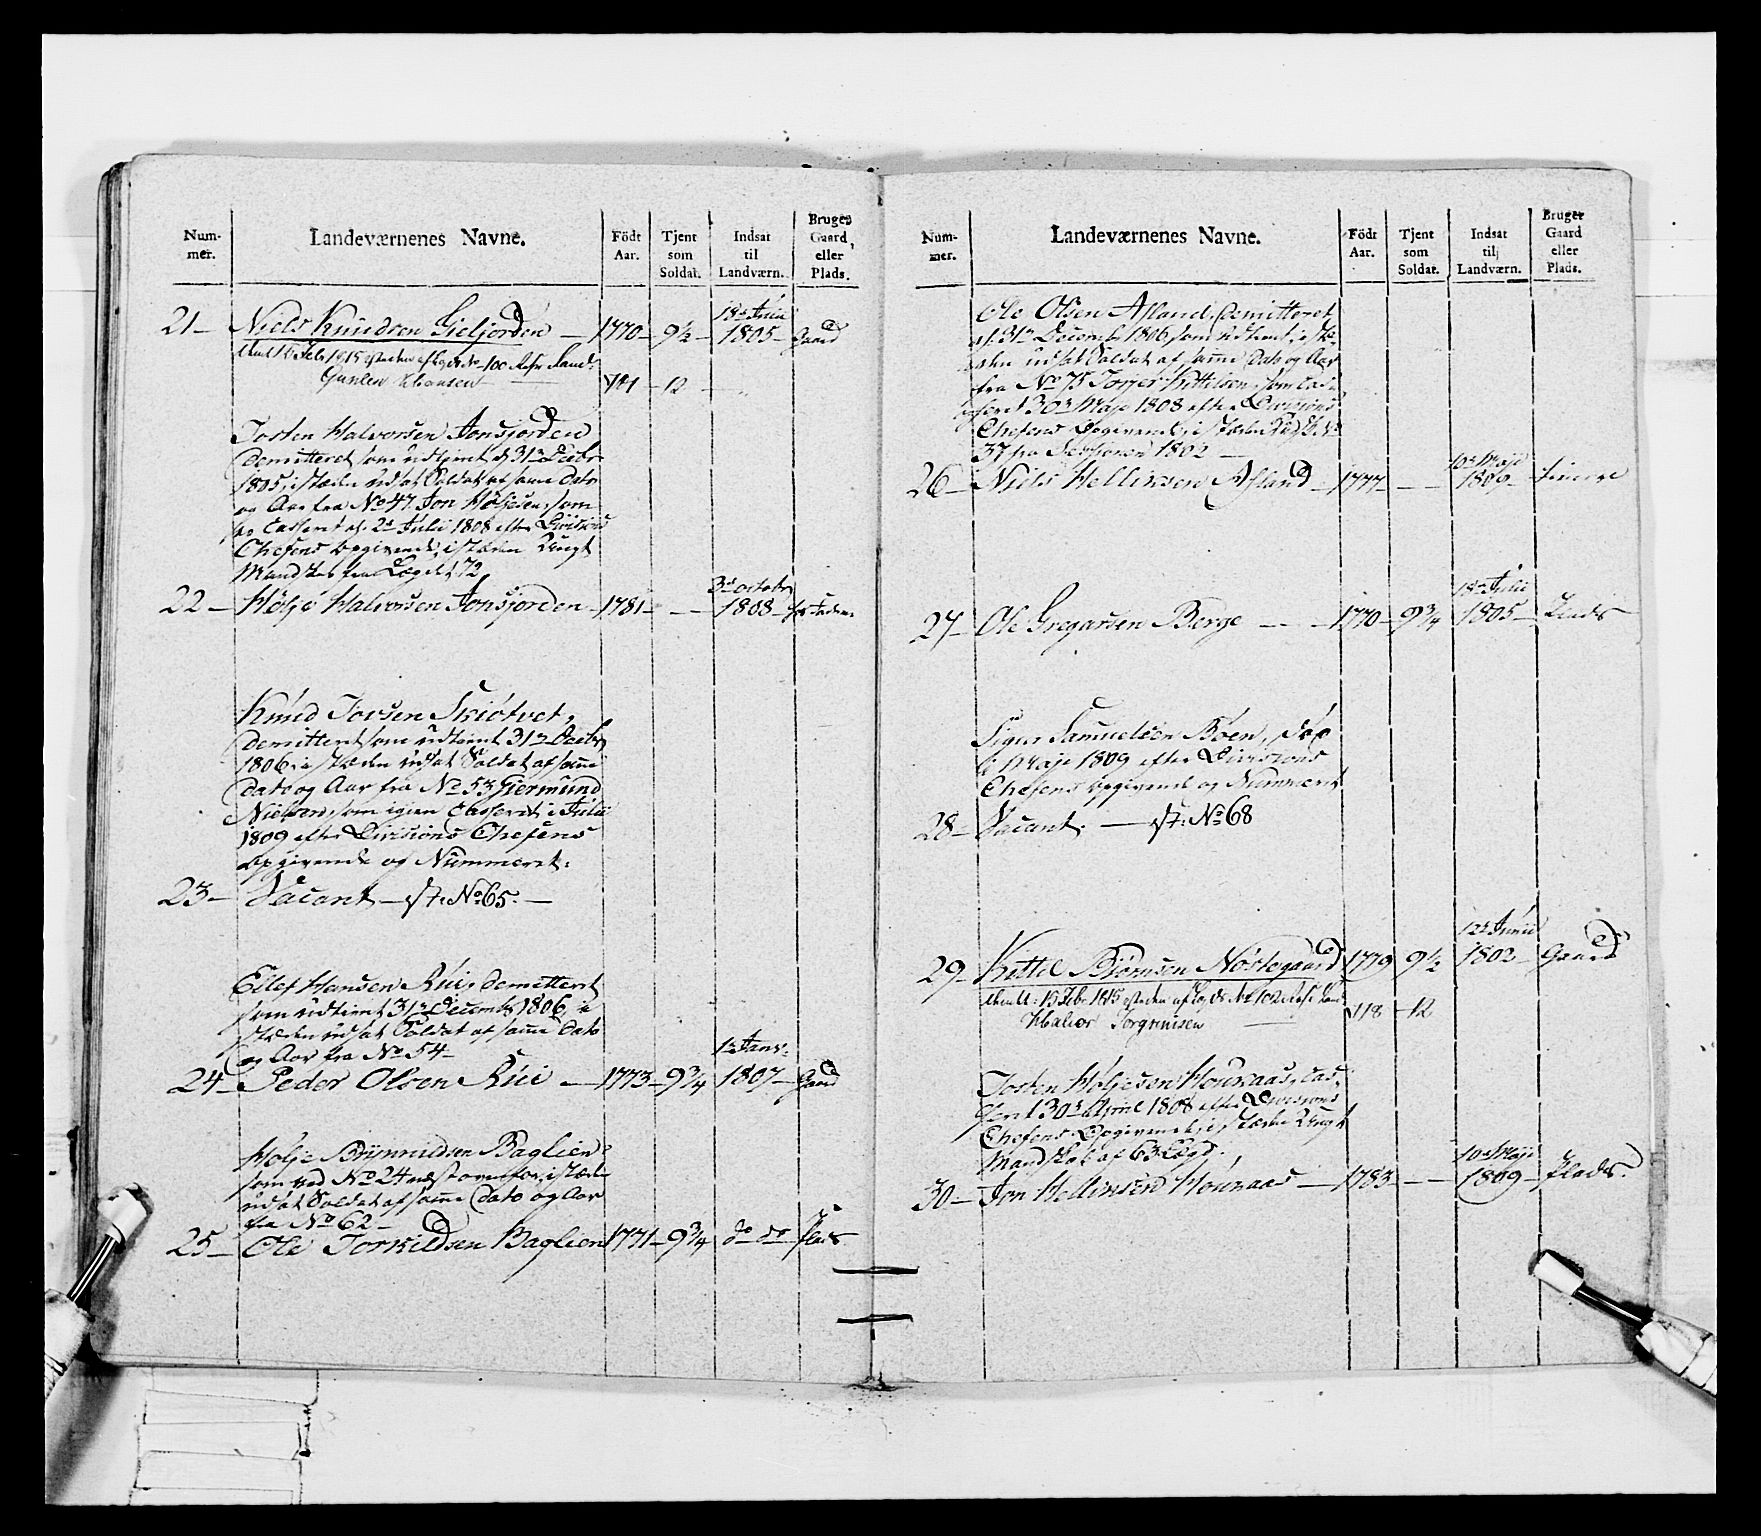 Num-
mer.
Landeværnenes Navne.
Födt
Aar.
Tjent
som
Soldat.
Indsat
til
Landværn.
Bruger
Gaard,
eller
Plads.
21 — Niels Knudsen Gieljorden — 1770 — 9½ — 18de Julii 1805 — Gaard
No 100
Hansen — 12 —
Tosten Halvorsen Jonsjorden
demitteret som udtient af 31te Decbr
1805, i stæden udsat Soldat af samme Dato
og Aar fra No 47. Jon Høljesen, som
er Casseret af 2d Julii 1808 efter Divisions
Chefens opgivende, i stæden Ungt
Mandskab fra Lægdet 72
22 — Hølje Halvorsen Jonsjorden — 1781 — — 3d octobr 1808 —
Knud Torsen Skiøtvet,
demitteret som udtient 31te Decbr
1806 i stæden udsat Soldat af samme
dato og Aar fra No 53 Giermund
Nielsen, som igien Casseret i Julii
1809 efter Divisions Chefens
opgivende og Nummeret.
23 — Vacant — No 65. —
Ellef Hansen Rui, demitteret
som udtient 31te Decembr 1806, i
stæden udsat Soldat af samme dato
og Aar fra No 54 —
24 — Peder Olsen Rui — 1773 — 9¾ — 1te Janv: 1807 — Gaard
Hølje Brynnildsen Baglien
som ved No 24 næst ovenfor, i stæd
udsat Soldat af samme dato og Aar
fra No 62 —
25 — Ole Torkildsen Baglien 1771 — 9¾ do do Plads
Num-
mer.
Landeværnenes Navne.
Födt
Aar.
Tjent
som
Soldat.
Indsat
til
Landværn.
Bruger
Gaard
eller
Plads.
Ole Olsen Afland, demitteret
af 31te Decembr 1806, som udtient, i stæ-
den udsat Soldat af samme dato og Aar
fra No 75 Torger Kittelsen, som cas-
seret 30te Maji 1808 efter Divisions
Chefens Opgivende, i stæden
37 fra Sessionen 1802 —
26 — Niels Hellixsen Afland — 1777 — — 10de Maji 1809 —
27 — Ole Gregarsen Berge — — 1770 — 9¾ 18de Julii 1805 — Plads
Sigur Samuelsen Bøen, død
Maji 1809 efter Divisions
Chefens opgivende og Nummeret
28 — Vacant. — No 68
29 — Kittel Biørnsen Nørstegaard 1779 9½ 12te Junii 1802 — Gaard
No 102
Halvor Torgrimsen — 12
Tosten Høljesen Houraas, cas-
seret 30te April 1808 efter Divisions
Chefens Opgivende, i stæden Ungt
Mandskab af 63 Lægd.
30 — Jon Hellixsen Houraas — 1783 — — 10de Maji 1809 — Plads.